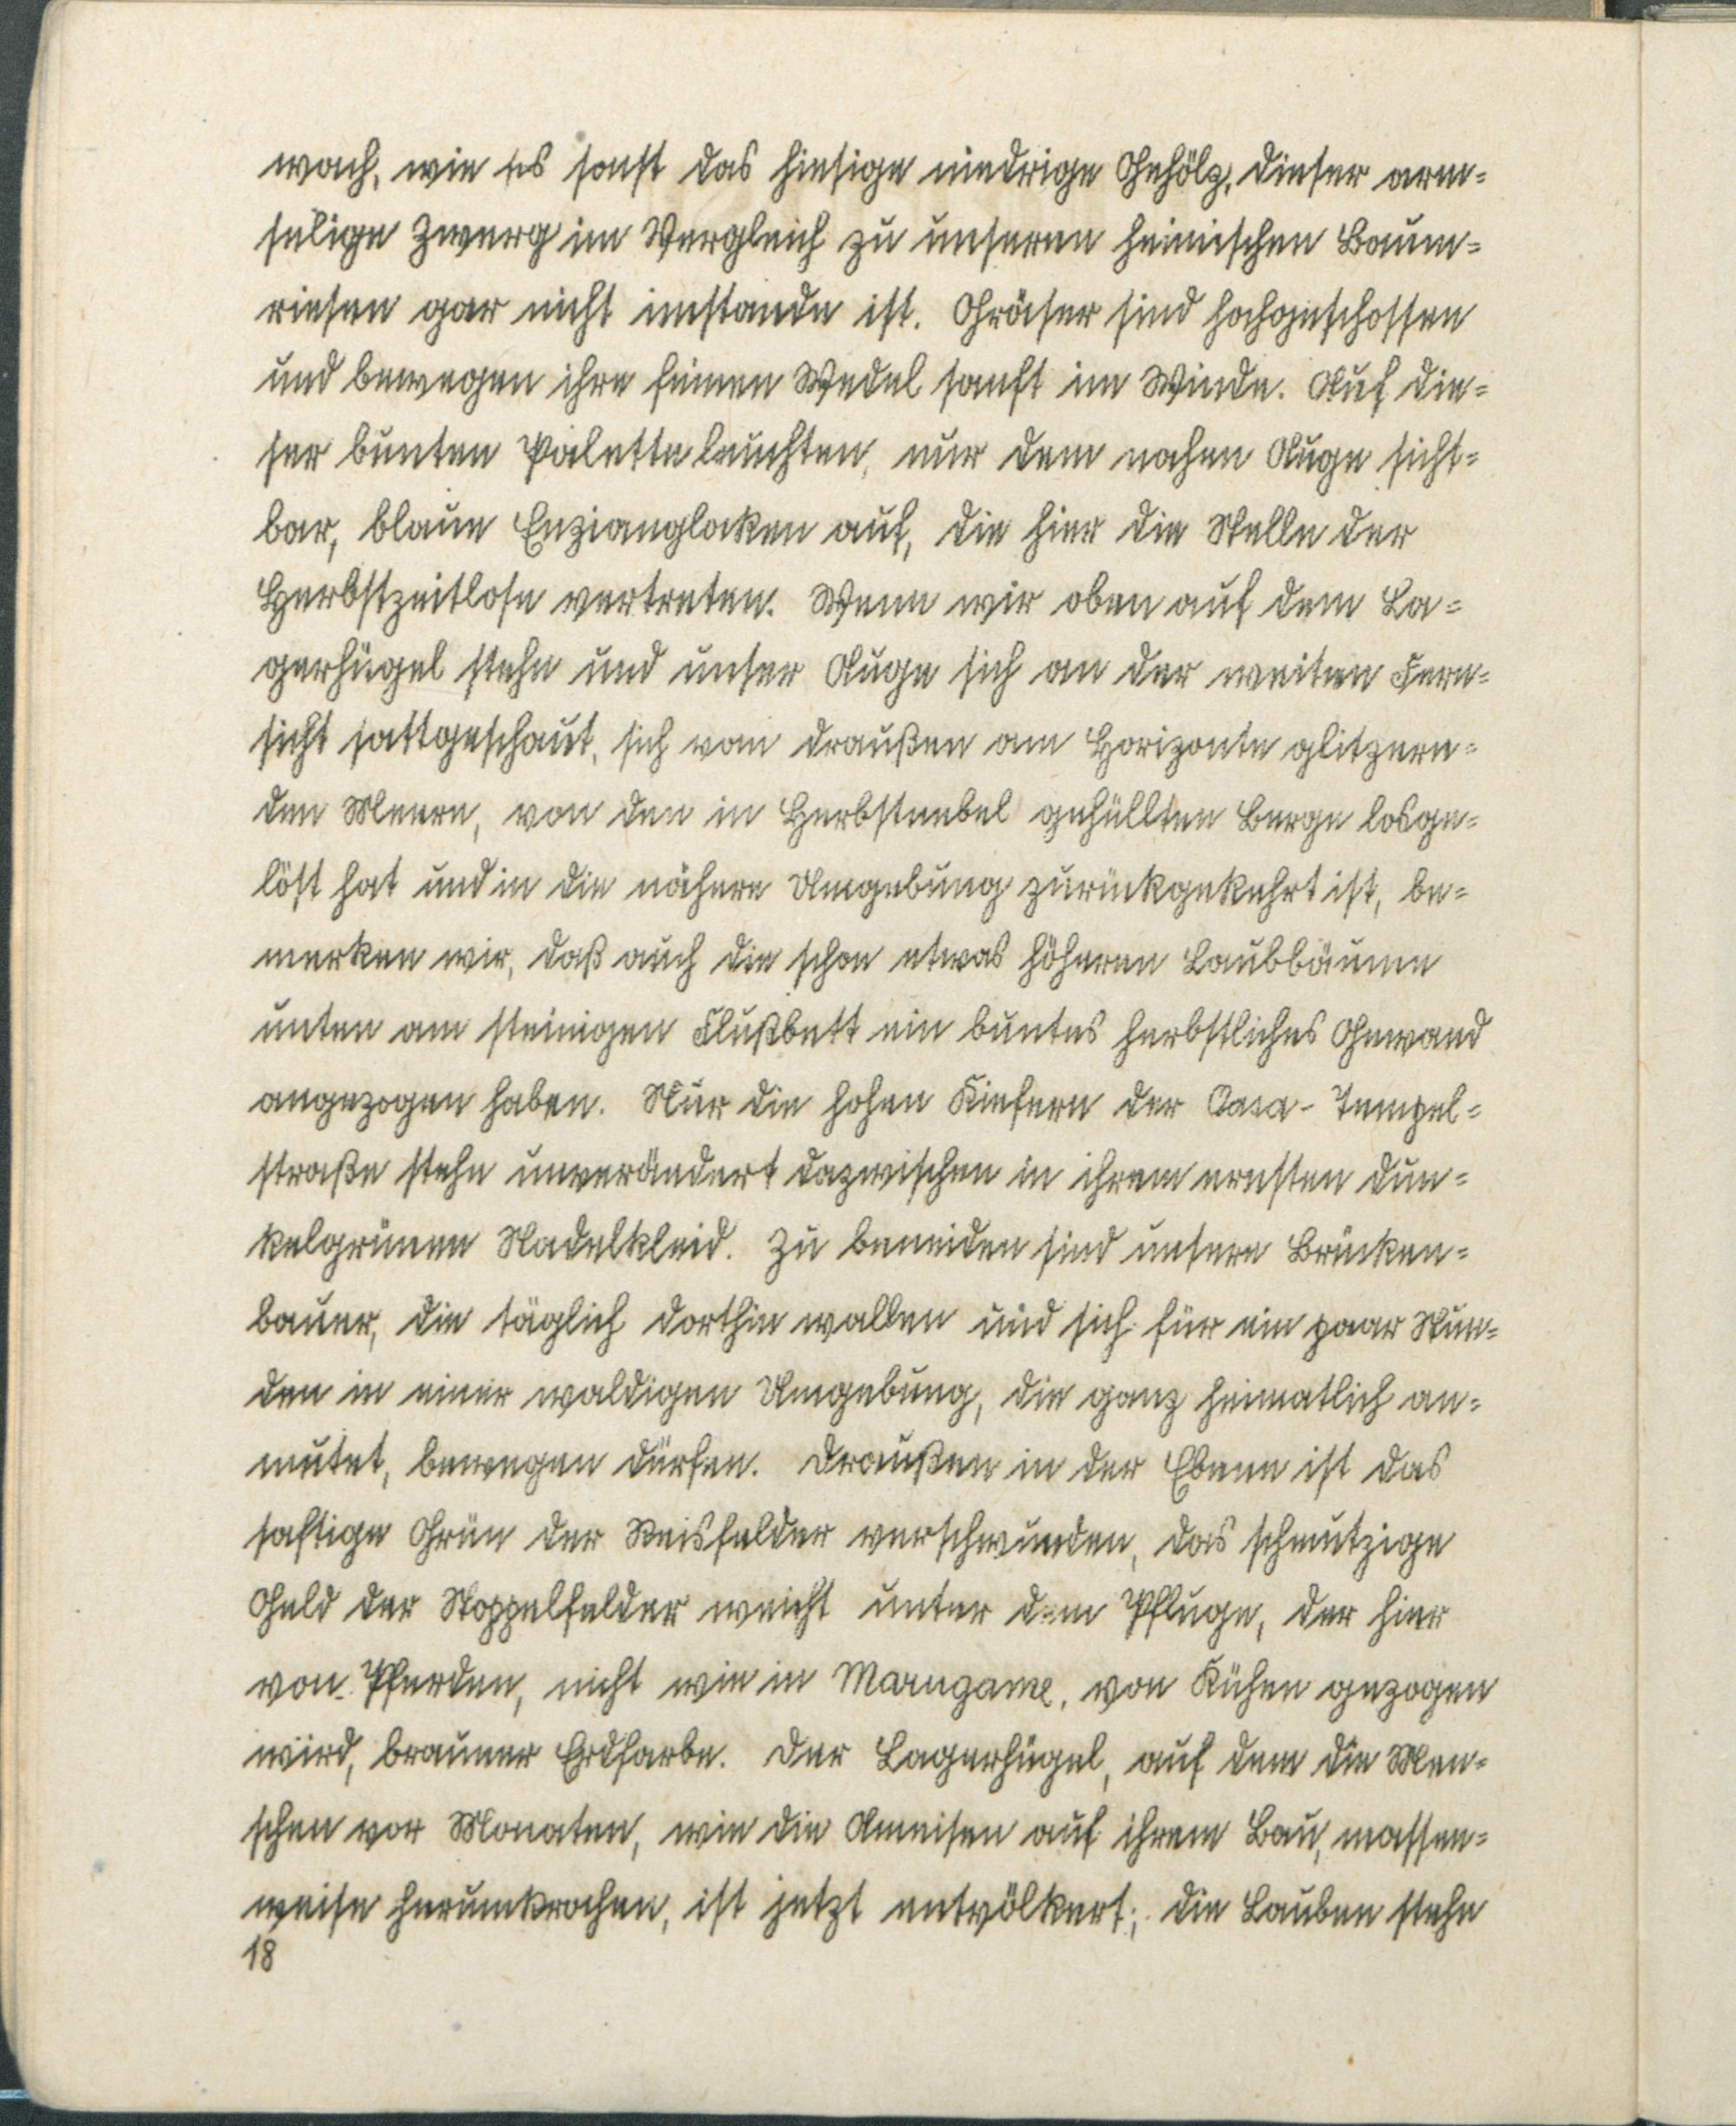 wach, wie es sonst das hiesige niedrige Gehölz, dieser arm-
selige Zwerg im Vergleich zu unseren heimischen Baum-
riesen gar nicht imstande ist. Gräser sind hochgeschossen
und bewegen ihre feinen Wedel sanft im Winde. Auf die-
ser bunten Palette leuchten, nur dem nahen Auge sicht-
bar, blaue Enzianglocken auf, die hier die Stelle der
Herbstzeitlose vertreten. Wenn wir oben auf dem La-
gerhügel stehn und unser Auge sich an der weiten Fern-
sicht sattgeschaut, sich vom draußen am Horizonte glitzern-
den Meere, von den in Herbstnebel gehüllten Berge losge-
löst hat und in die nähere Umgebung zurückgekehrt ist, be-
merken wir, daß auch die schon etwas höheren Laubbäume
unten am steinigen Flußbett ein buntes herbstliches Gewand
angezogen haben. Nur die hohen Kiefern der Oasa-Tempel-
straße stehn unverändert dazwischen in ihrem ernsten dun-
kelgrünen Nadelkleid. Zu beneiden sind unsere Brücken-
bauer, die täglich dorthin wallen und sich für ein paar Stun-
den in einer waldigen Umgebung, die ganz heimatlich an-
mutet, bewegen dürfen. Draußen in der Ebene ist das
saftige Grün der Reisfelder verschwunden, das schmutzige
Geld der Stoppelfelder weicht unter dem Pfluge, der hier
von Pferden, nicht wie in Marugame, von Kühen gezogen
wird, brauner Erdfarbe. Der Lagerhügel, auf dem die Men-
schen vor Monaten, wie die Ameisen auf ihrem Bau, massen-
weise herumkrochen, ist jetzt entvölkert; die Lauben stehn
18